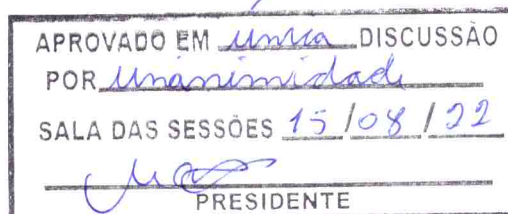 APROVADO EM única DISCUSSÃO
POR Unanimidade
SALA DAS SESSÕES 15/08/22
PRESIDENTE